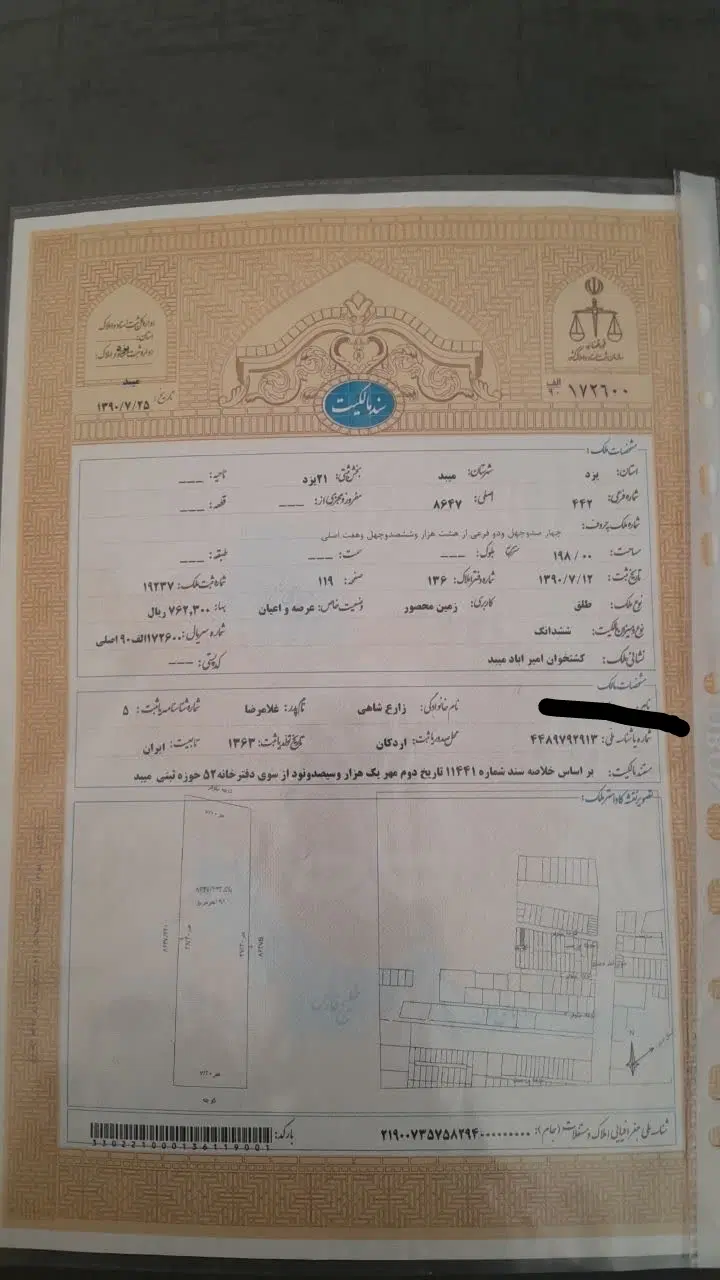 قوه قضائیه
سازمان ثبت اسناد و املاک کشور
اداره کل ثبت اسناد و املاک
استان:
میبد
تاریخ: ۱۳۹۰/۷/۲۵
الف ۹۰ ۱۷۲۶۰۰
سند مالکیت
مشخصات ملک:
استان: یزد شهرستان: میبد بخش ثبتی: ۲۱یزد ناحیه: ---
شماره فرعی: ۴۴۲ اصلی: ۸۶۴۷ مفروز و مجزی از: --- قطعه: ---
شماره ملک به حروف: چهار صدوچهل ودو فرعی از هشت هزار وششصدوچهل وهفت اصلی
مساحت: ۱۹۸/۰۰ بلوک: --- سمت: --- طبقه: ---
تاریخ ثبت: ۱۳۹۰/۷/۱۲ شماره دفتر املاک: ۱۳۶ صفحه: ۱۱۹ شماره ثبت ملک: ۱۹۲۳۷
نوع ملک: طلق کاربری: زمین محصور وضعیت خاص: عرصه و اعیان بها: ۷۶۲,۳۰۰ ریال
نوع و میزان مالکیت: ششدانگ شماره سریال: ۱۷۲۶۰۰الف۹۰ اصلی
نشانی ملک: کشتخوان امیر اباد میبد کد پستی: ---
مشخصات مالک
نام خانوادگی: زارع شاهی نام پدر: غلامرضا شماره شناسنامه یا ثبت: ۵
شماره یا شناسه ملی: ۴۴۸۹۷۹۲۹۱۳ محل صدور یا ثبت: اردکان تاریخ تولد یا ثبت: ۱۳۶۳ تابعیت: ایران
مستند مالکیت: بر اساس خلاصه سند شماره ۱۱۴۴۱ تاریخ دوم مهر یک هزار وسیصدونود از سوی دفترخانه ۵۲ حوزه ثبتی میبد
تصویر نقشه کاداستر ملک:
کوچه
N
شناسه ملی جغرافیایی املاک و مستغلات (جام): ۲۱۹۰۰۷۳۵۷۵۸۲۹۴۰۰۰۰۰۰۰۰۰
بارکد:
330221000136119001